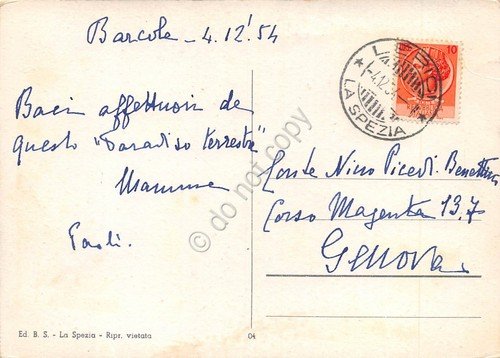 Barcola - 4.12'.54
Baci affettuosi da
questo "Paradiso terrestre"
Mamma
Paoli.
Conte Nino Picedi Benettini
Corso Magenta 13.7
Genova
10
LA SPEZIA
do not copy
Ed. B. S. - La Spezia - Ripr. vietata
04